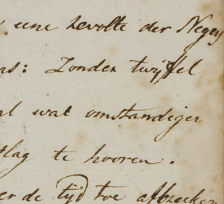 eene revolte der Neger
as: Zonder twijffel
al wat omstandiger
slag te hooren.
er de tijd toe afbreeken